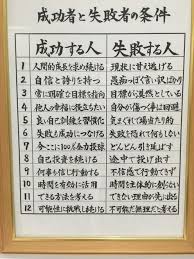 成功者と失敗者の条件
成功する人 失敗する人
1 人間的成長を求め続ける 現状に甘え逃げる
2 自信と誇りを持つ 愚痴っぽく言い訳ばかり
3 常に明確な目標を指向 目標が漠然としている
4 他人の幸福に役立ちたい 自分が傷つく事は回避
5 良い自己訓練を習慣化 気まぐれで場当たり的
6 失敗も成功につなげる 失敗を恐れて何もしない
7 今ここに100%全力投球 どんどん先延ばす
8 自己投資を続ける 途中で投げ出す
9 何事も信じ行動する 不信感で行動できず
10 時間を有効に活用 時間を主体的に創らない
11 できる方法を考える できない理由が先に出る
12 可能性に挑戦し続ける 不可能だ無理だと考える